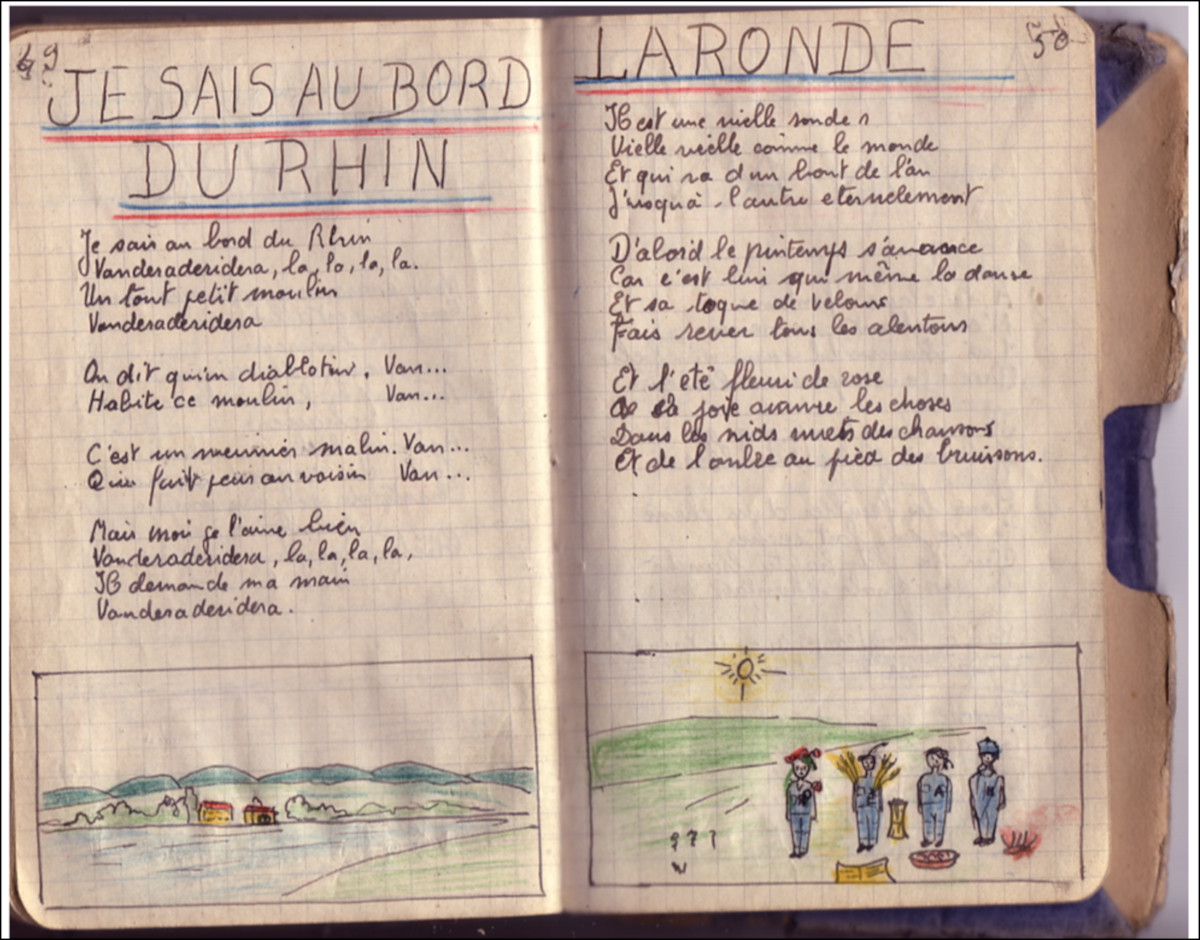 49
JE SAIS AU BORD
DU RHIN
Je sais au bord du Rhin
Vanderaderidera, la, la, la, la.
Un tout petit moulin
Vanderaderidera
On dit qu'un diablotin, Van...
Habite ce moulin, Van...
C'est un meunier malin. Van...
Qui fait peur au voisin Van...
Mais moi je l'aime bien
Vanderaderidera, la, la, la, la,
Il demande ma main
Vanderaderidera.
50
LA RONDE
Il est une vielle ronde
Vielle vielle comme le monde
Et qui va d'un bout de l'an
J'usqu'à l'autre eternelement
D'abord le printemps s'avance
Car c'est lui qui mêne la danse
Et sa toque de velours
Fais rever tous les alentours
Et l'eté fleuri de rose
De sa joie avanve les choses
Dans les nids mets des chansons
Et de l'onbre au pied des bruissons.
P
E
A
H